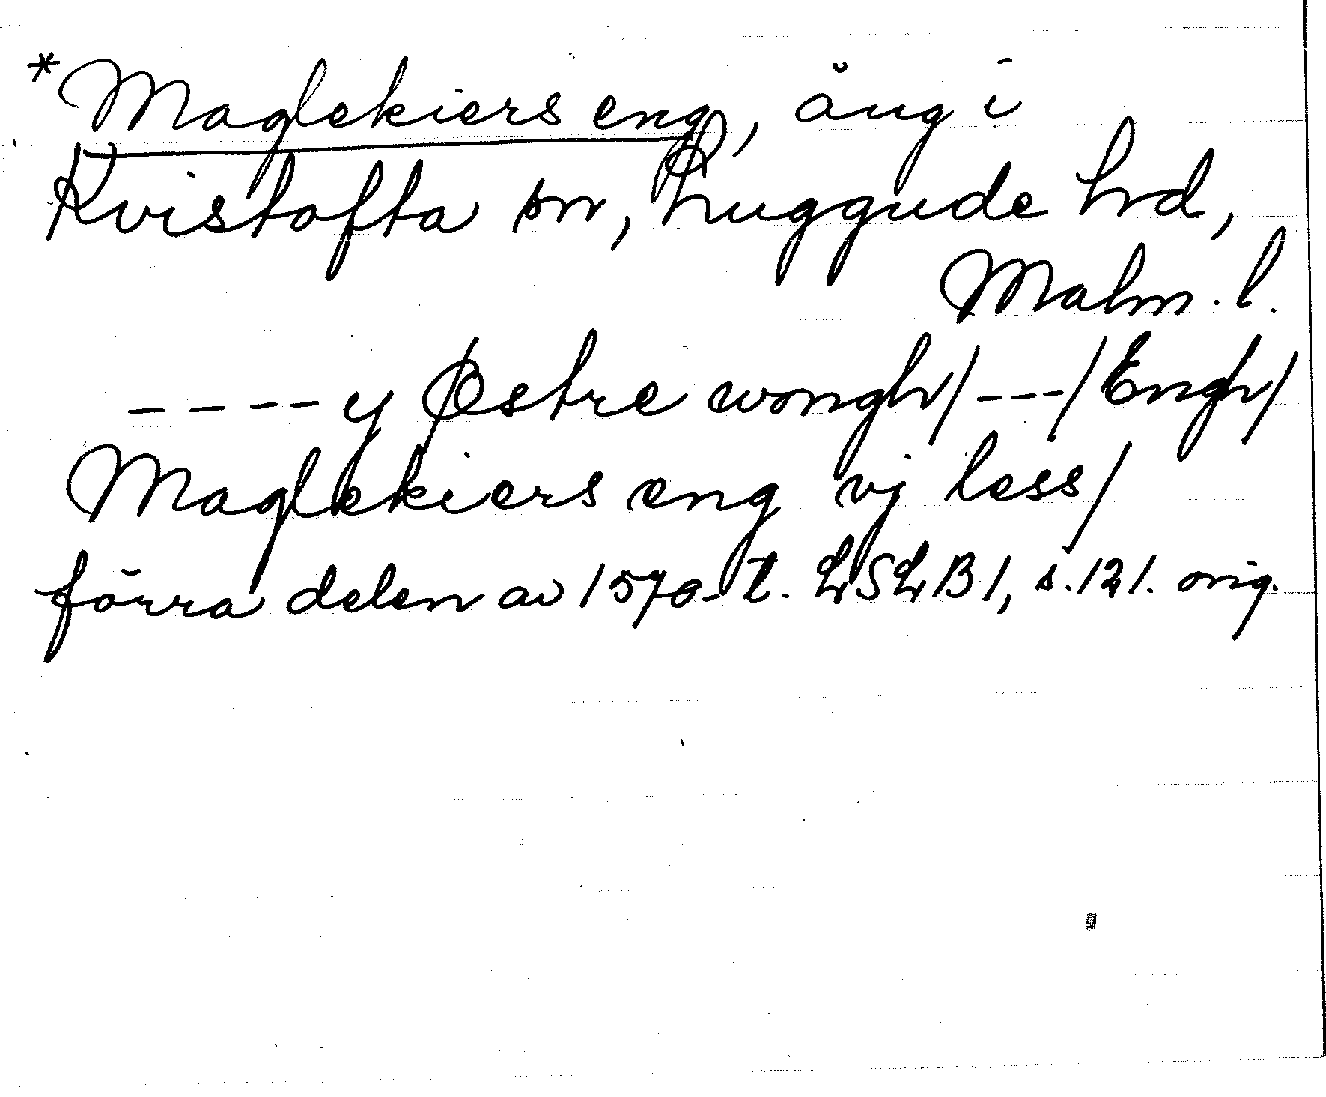 *Maglekiers eng, äng i
Kvistofta sn, Luggude hd,
Malm. l.
---- y Østre wongh/---/Engh/
Maglekiers eng vj less/
förra delen av 1570-t. LSLB1, s. 121. orig.